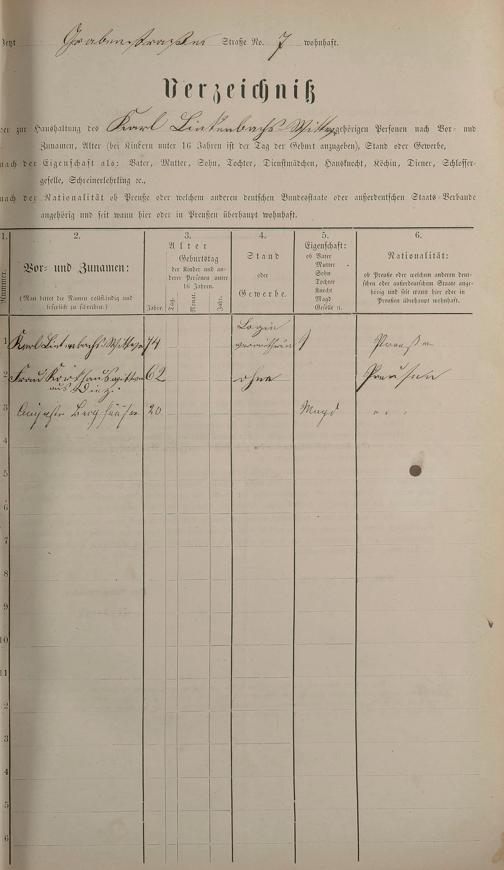 Jetzt Grabenstraße Straße No. 7 wohnhaft.
Verzeichniß
der zur Haushaltung des Karl Linkenbachs Wittwe gehörigen Personen nach Vor- und
Zunamen, Alter (bei Kindern unter 16 Jahren ist der Tag der Geburt anzugeben), Stand oder Gewerbe,
nach der Eigenschaft als: Vater, Mutter, Sohn, Tochter, Dienstmädchen, Hausknecht, Köchin, Diener, Schlosser-
geselle, Schreinerlehrling ec.,
nach der Nationalität ob Preuße oder welchem anderen deutschen Bundesstaate oder außerdeutschen Staats-Verbande
angehörig und seit wann hier oder in Preußen überhaupt wohnhaft.
1. 2. 3. 4. 5. 6.
Nummer.
Vor- und Zunamen:
(Man bittet die Namen vollständig und
leserlich zu schreiben.)
Alter
Geburtstag
der Kinder und an-
derer Personen unter
16 Jahren.
Jahre. Tag. Monat. Jahr.
Stand
oder
Gewerbe.
Eigenschaft:
ob Vater
Mutter
Sohn
Tochter
Knecht
Magd
Geselle rc.
Nationalität:
ob Preuße oder welchem anderen deut-
schen oder außerdeutschen Staate ange-
hörig und seit wann hier oder in
Preußen überhaupt wohnhaft.
1 Karl Linkenbachs Wittwe 74 Preußen
2 Frau 62 ohne Preußen
aus
3 Auguste 20 Magd
4
5
6
7
8
9
10
11
2
3
4
5
6